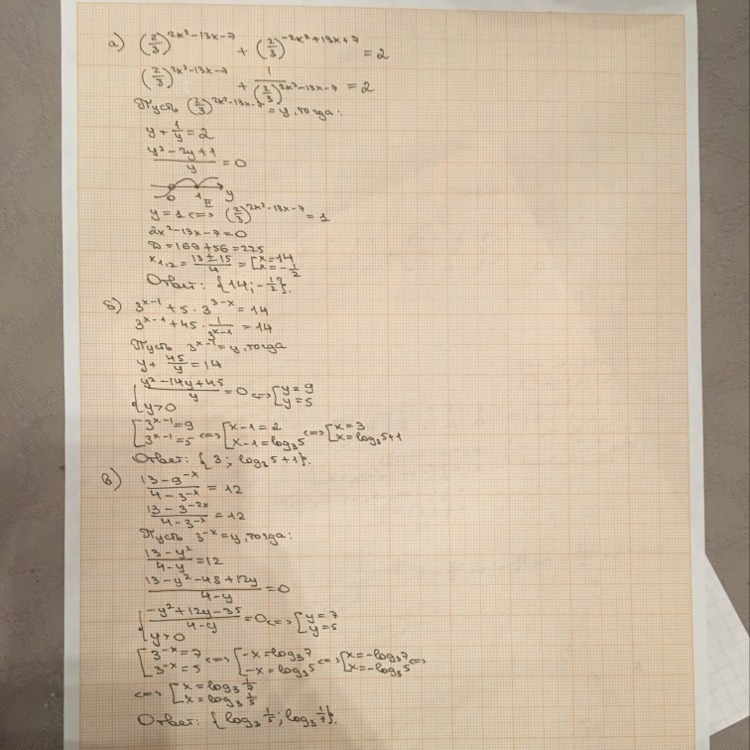 а) (2/3)^(2x²-13x-7) + (2/3)^(-2x²+13x+7) = 2
(2/3)^(2x²-13x-7) + 1/(2/3)^(2x²-13x-7) = 2
Пусть (2/3)^(2x²-13x-7) = y, тогда:
y + 1/y = 2
(y² - 2y + 1)/y = 0
0 1 II y
y = 1 <=> (2/3)^(2x²-13x-7) = 1
2x² - 13x - 7 = 0
D = 169 + 56 = 225
x₁,₂ = (13 ± 15)/4 = [x = 14
[x = -1/2
Ответ: {14; -1/2}.
б) 3^(x-1) + 5 · 3^(3-x) = 14
3^(x-1) + 45 · 1/3^(x-1) = 14
Пусть 3^(x-1) = y, тогда
y + 45/y = 14
{(y² - 14y + 45)/y = 0 <=> [y = 9
{y > 0 [y = 5
[3^(x-1) = 9 <=> [x - 1 = 2 <=> [x = 3
[3^(x-1) = 5 [x - 1 = log₃5 [x = log₃5 + 1
Ответ: {3; log₃5 + 1}.
в) (13 - 9^(-x))/(4 - 3^(-x)) = 12
(13 - 3^(-2x))/(4 - 3^(-x)) = 12
Пусть 3^(-x) = y, тогда:
(13 - y²)/(4 - y) = 12
(13 - y² - 48 + 12y)/(4 - y) = 0
{(-y² + 12y - 35)/(4 - y) = 0 <=> [y = 7
{y > 0 [y = 5
[3^(-x) = 7 <=> [-x = log₃7 <=> [x = -log₃7 <=>
[3^(-x) = 5 [-x = log₃5 [x = -log₃5
<=> [x = log₃ 1/7
[x = log₃ 1/5
Ответ: {log₃ 1/5; log₃ 1/7}.